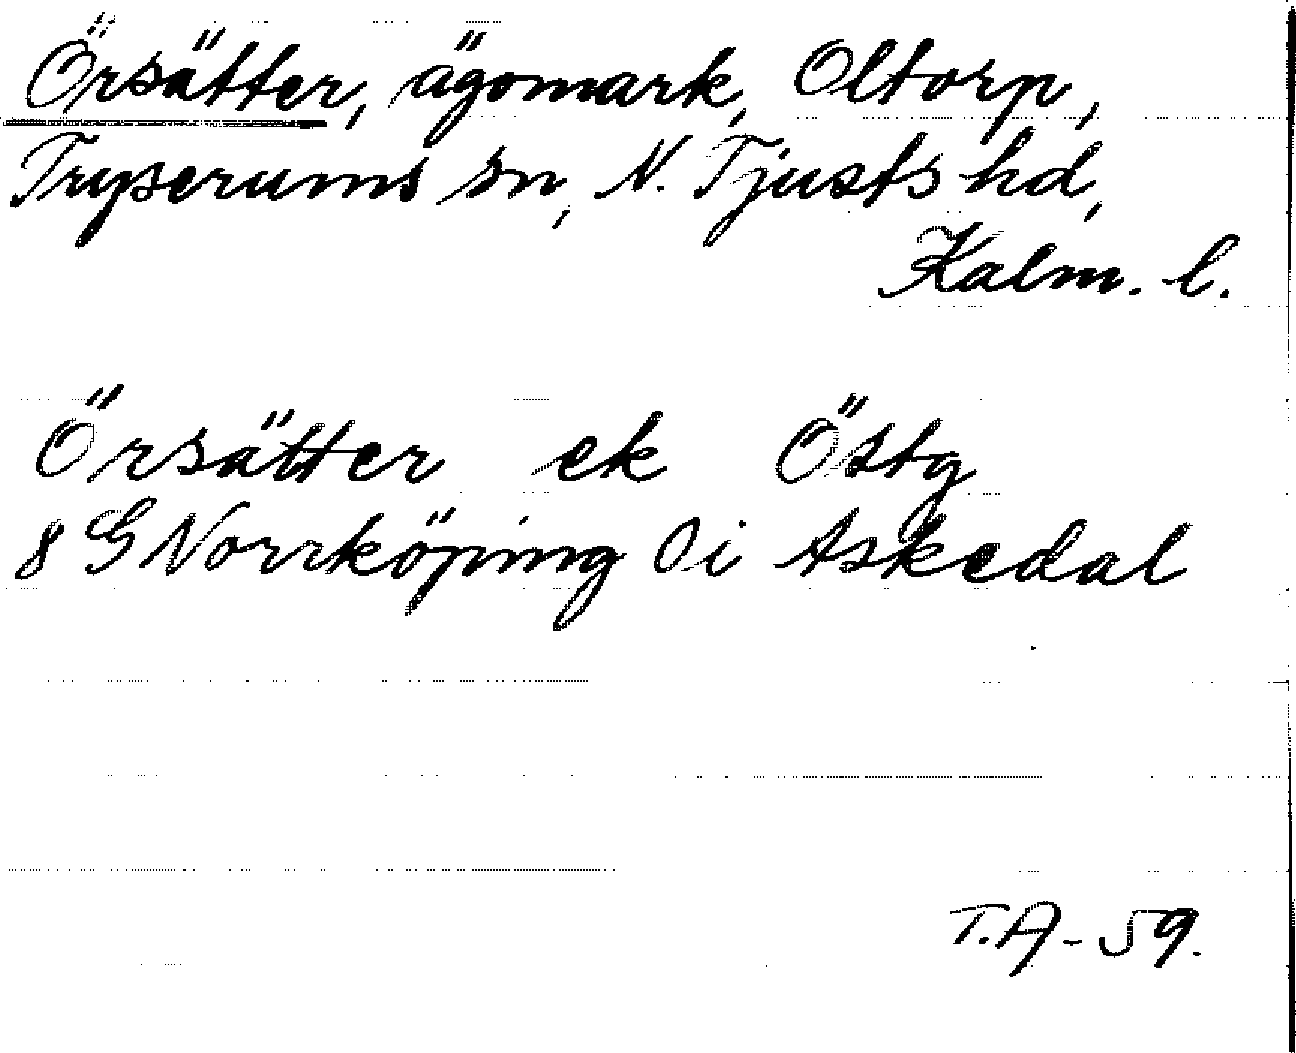 Örsätter, ägomark, Oltorp,
Tryserums sn, N. Tjusts hd,
Kalm. l.
Örsätter ek Östg
8 G Norrköping 0 i Askedal
T.A-59.